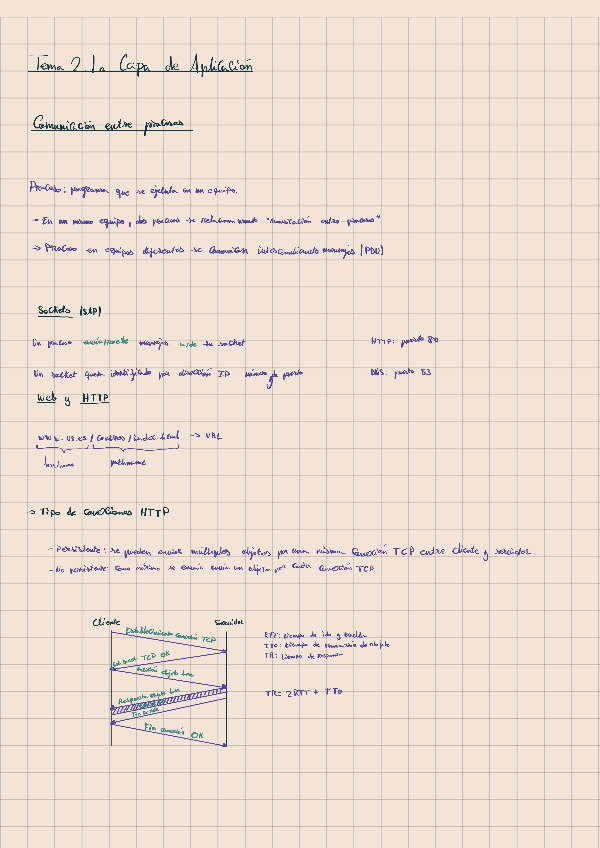 Tema 2. La Capa de Aplicación
Comunicación entre procesos
Proceso: programa que se ejecuta en un equipo.
- En un mismo equipo, dos procesos se relacionan usando "comunicación entre-procesos"
-> Procesos en equipos diferentes se comunican intercambiando mensajes (PDU)
Sockets (SAP)
Un proceso envía/recibe mensajes a/de su socket
HTTP: puerto 80
Un socket queda identificado por dirección IP número de puerto
DNS: puerto 53
Web y HTTP
www.us.es/centros/index.html -> URL
hostname pathname
-> Tipo de conexiones HTTP
- Persistente: se pueden enviar múltiples objetos por una misma conexión TCP entre cliente y servidor.
- No persistente: como máximo se envía un objeto por cada conexión TCP
Cliente Servidor
Establecimiento conexión TCP
TCP OK
Petición objeto
Respuesta objeto
Fin conexión OK
RTT: tiempo de ida y vuelta
TTO: tiempo de transmisión de objeto
TR: tiempo de respuesta
TR= 2RTT + TTO